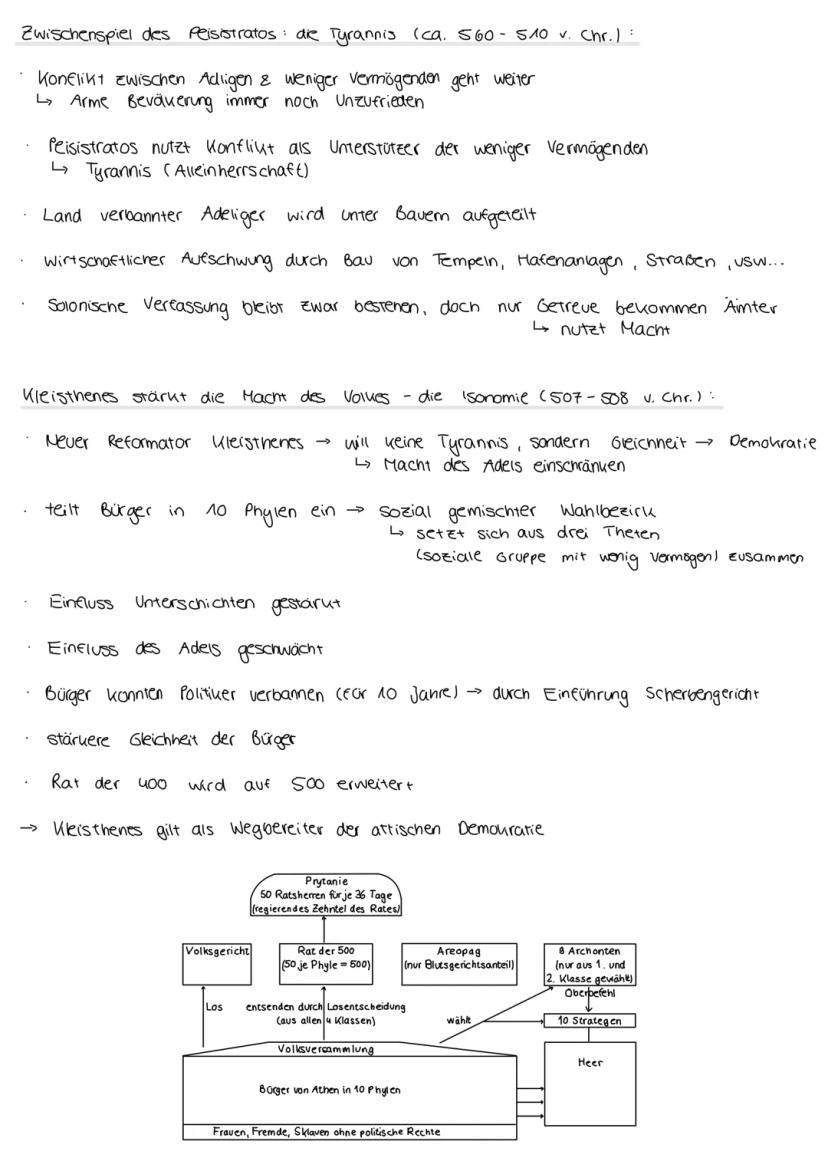 Zwischenspiel des Peisistratos: die Tyrannis (ca. 560 - 510 v. Chr.):
· Konflikt zwischen Adligen & weniger Vermögenden geht weiter
↳ Arme Bevölkerung immer noch Unzufrieden
· Peisistratos nutzt Konflikt als Unterstützer der weniger Vermögenden
↳ Tyrannis (Alleinherrschaft)
· Land verbannter Adeliger wird unter Bauern aufgeteilt
· Wirtschaftlicher Aufschwung durch Bau von Tempeln, Hafenanlagen, Straßen, usw...
· Solonische Verfassung bleibt zwar bestehen, doch nur Getreue bekommen Ämter
↳ nutzt Macht
Kleisthenes stärkt die Macht des Volkes - die Isonomie (507 - 508 v. Chr.):
· Neuer Reformator Kleisthenes → will keine Tyrannis, sondern Gleichheit → Demokratie
↳ Macht des Adels einschränken
· teilt Bürger in 10 Phylen ein → sozial gemischter Wahlbezirk
↳ setzt sich aus drei Theten
(soziale Gruppe mit wenig Vermögen) zusammen
· Einfluss Unterschichten gestärkt
· Einfluss des Adels geschwächt
· Bürger konnten Politiker verbannen (für 10 Jahre) → durch Einführung Scherbengericht
· stärkere Gleichheit der Bürger
· Rat der 400 wird auf 500 erweitert
→ Kleisthenes gilt als Wegbereiter der attischen Demokratie
Prytanie
50 Ratsherren für je 36 Tage
(regierendes Zehntel des Rates)
Volksgericht
Rat der 500
(50 je Phyle = 500)
Areopag
(nur Blutsgerichtsanteil)
8 Archonten
(nur aus 1. und
2. Klasse gewählt)
Oberbefehl
Los
entsenden durch Losentscheidung
(aus allen 4 Klassen)
wählt
10 Strategen
Volksversammlung
Heer
Bürger von Athen in 10 Phylen
Frauen, Fremde, Sklaven ohne politische Rechte